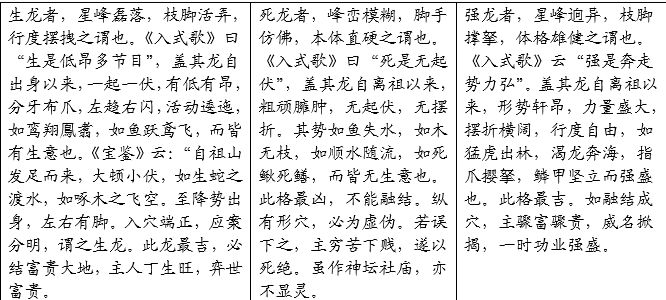 生龙者，星峰磊落，枝脚活弄，
行度摆拽之谓也。《入式歌》曰
“生是低昂多节目”，盖其龙自
出身以来，一起一伏，有低有昂，
分牙布爪，左趋右闪，活动逶迤，
如鸾翔鳳翥，如鱼跃鸢飞，而皆
有生意也。《宝鉴》云：“自祖山
发足而来，大顿小伏，如生蛇之
渡水，如啄木之飞空。至降势出
身，左右有脚。入穴端正，应案
分明，谓之生龙。此龙最吉，必
结富贵大地，主人丁生旺，弈世
富贵。
死龙者，峰峦模糊，脚手
仿佛，本体直硬之谓也。
《入式歌》曰“死是无起
伏”，盖其龙自离祖以来，
粗顽臃肿，无起伏，无摆
折。其势如鱼失水，如木
无枝，如顺水随流，如死
鳅死鳝，而皆无生意也。
此格最凶，不能融结。纵
有形穴，必为虚伪。若误
下之，主穷苦下贱，遂以
死绝。虽作神坛社庙，亦
不显灵。
强龙者，星峰迥异，枝脚
撑拏，体格雄健之谓也。
《入式歌》云“强是奔走
势力弘”。盖其龙自离祖以
来，形势轩昂，力量盛大，
摆折横阔，行度自由，如
猛虎出林，渴龙奔海，指
爪撄拏，鳞甲坚立而强盛
也。此格最吉。如融结成
穴，主骤富骤贵，威名掀
揭，一时功业强盛。